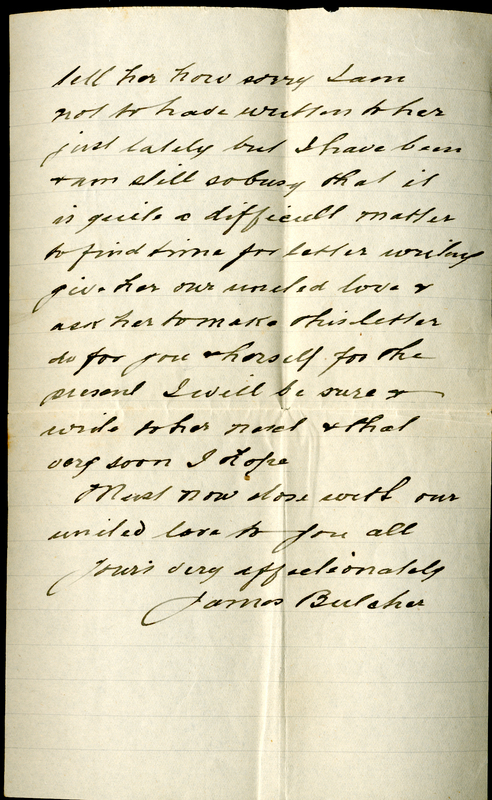 tell her how sorry I am
not to have written to her
just lately but I have been
& am still so busy that it
is quite a difficult matter
to find time for letter writing
give her our united love &
ask her to make this letter
do for you & herself for the
present I will be sure &
write to her next & that
very soon I Hope
Must now close with our
united love to you all
Your's very affectionately
James Butcher